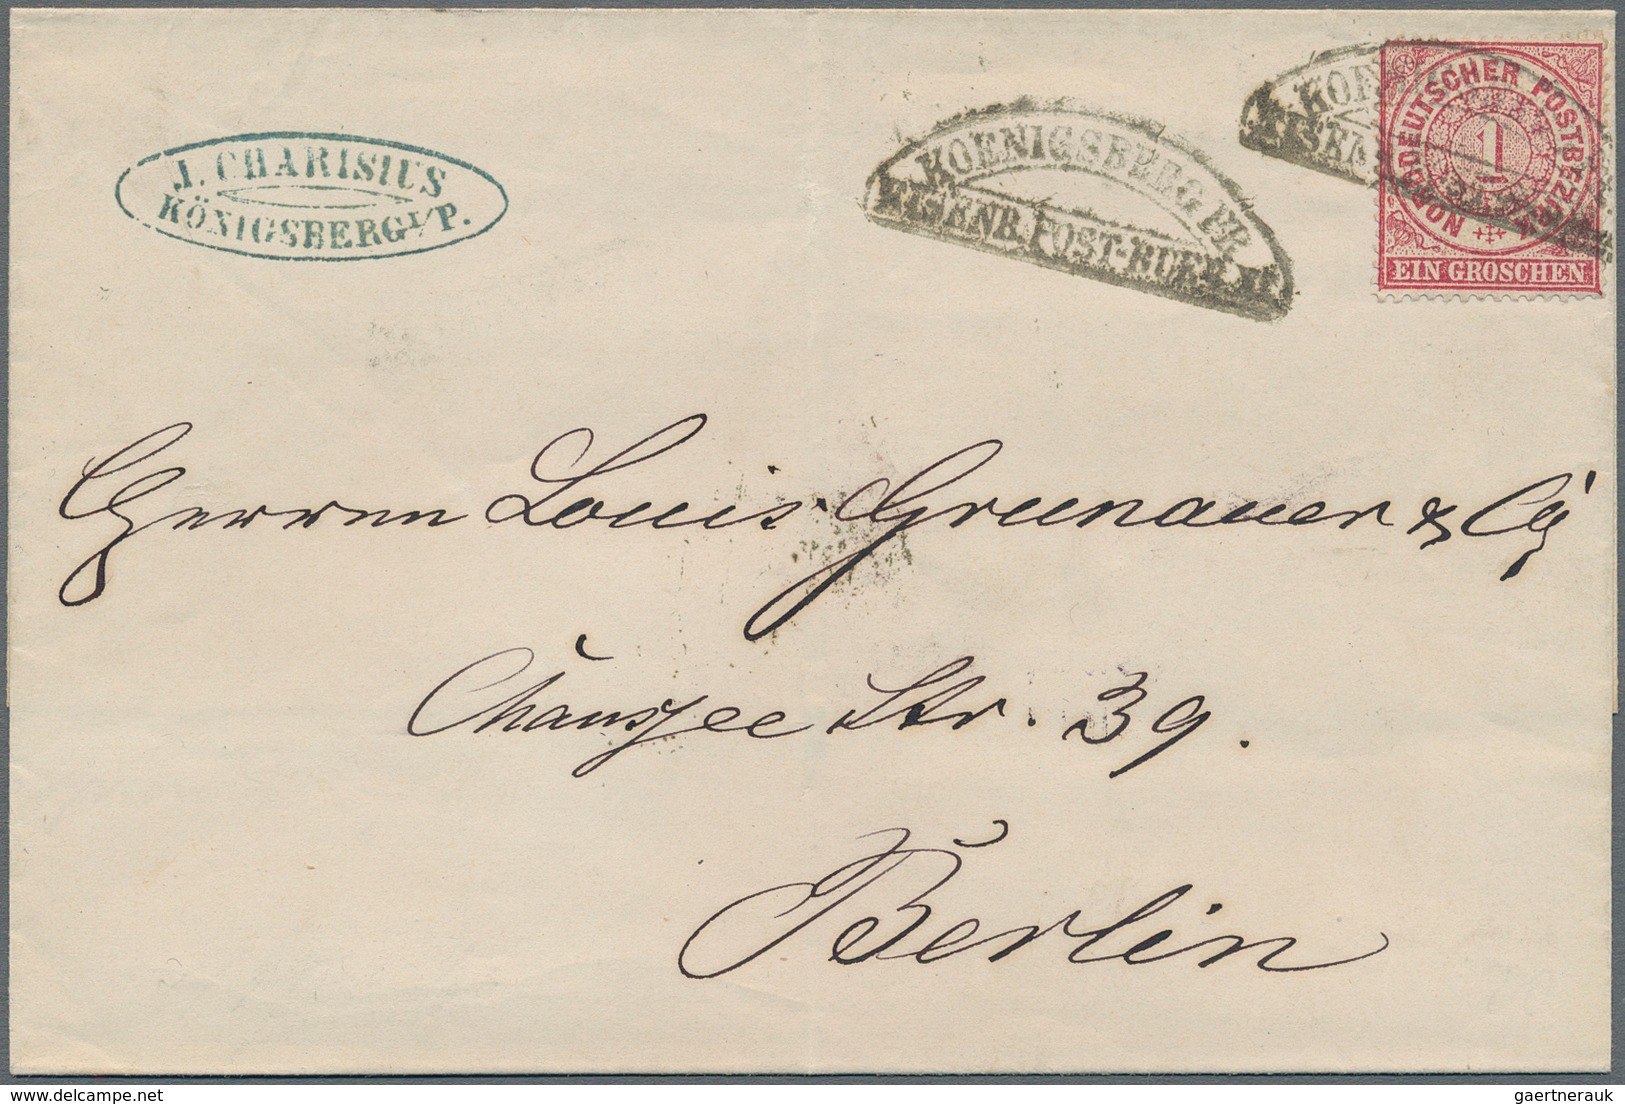 J. CHARISIUS
KÖNIGSBERG I/P.
KOENIGSBERG PR.
EISENB. POST-BUR.
NORDDEUTSCHER POSTBEZIRK
1
EIN GROSCHEN
Herren Louis Grunauer & Cie
Chaussee Str. 39.
Berlin
delcampe.net
gaertnerauk